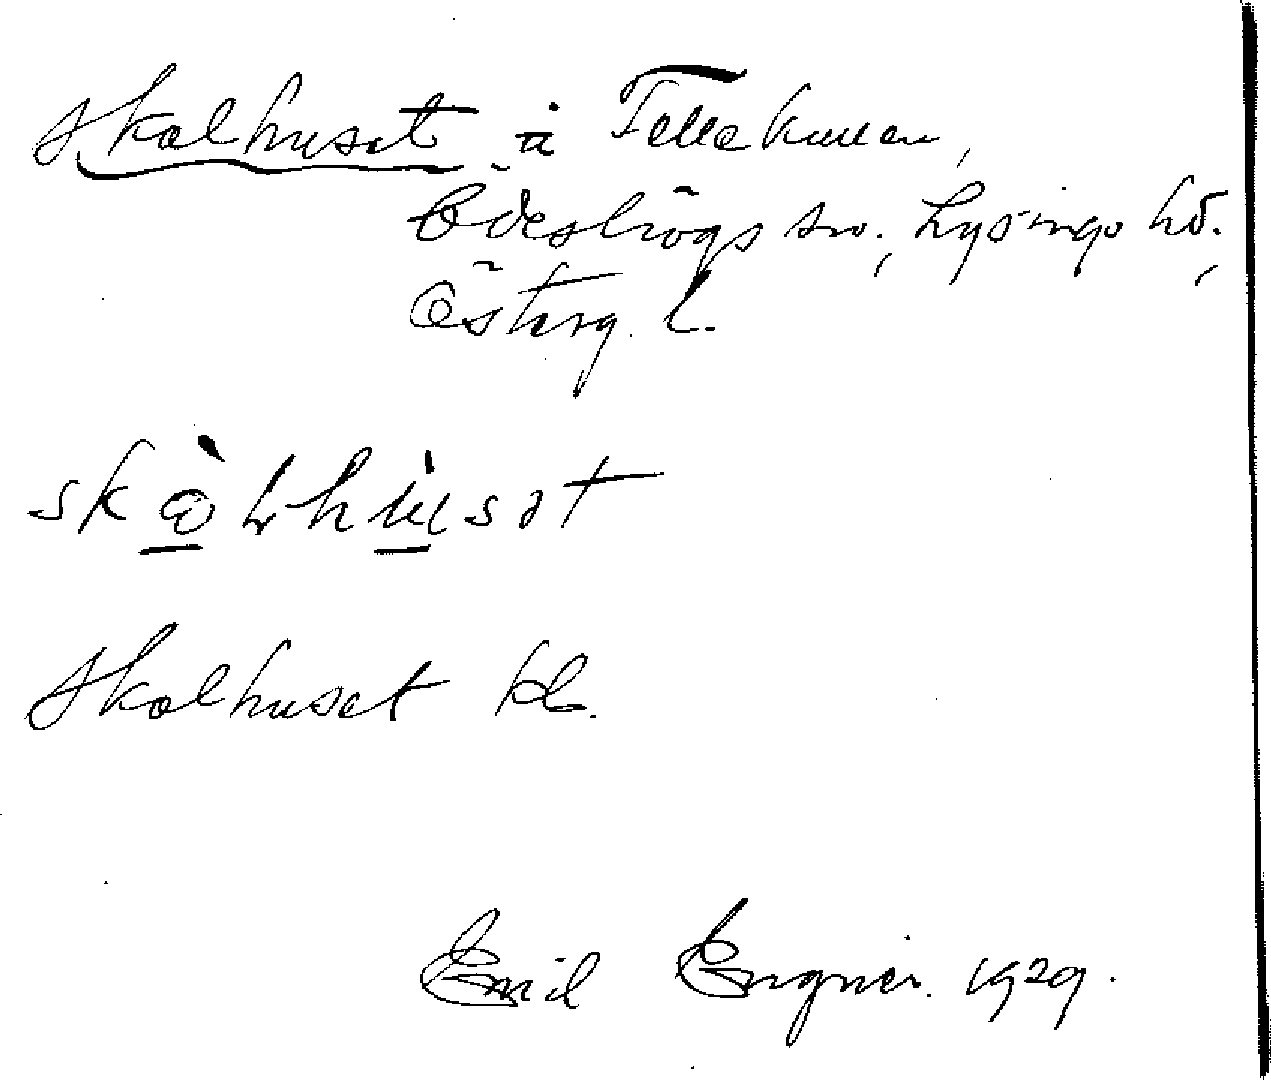 Skolhuset å Fellekullen,
Ödeshögs sn., Lysings hd.,
Österg. l.
skò̱lhù̱sət
Skolhuset kl.
Emil Engner. 1929.